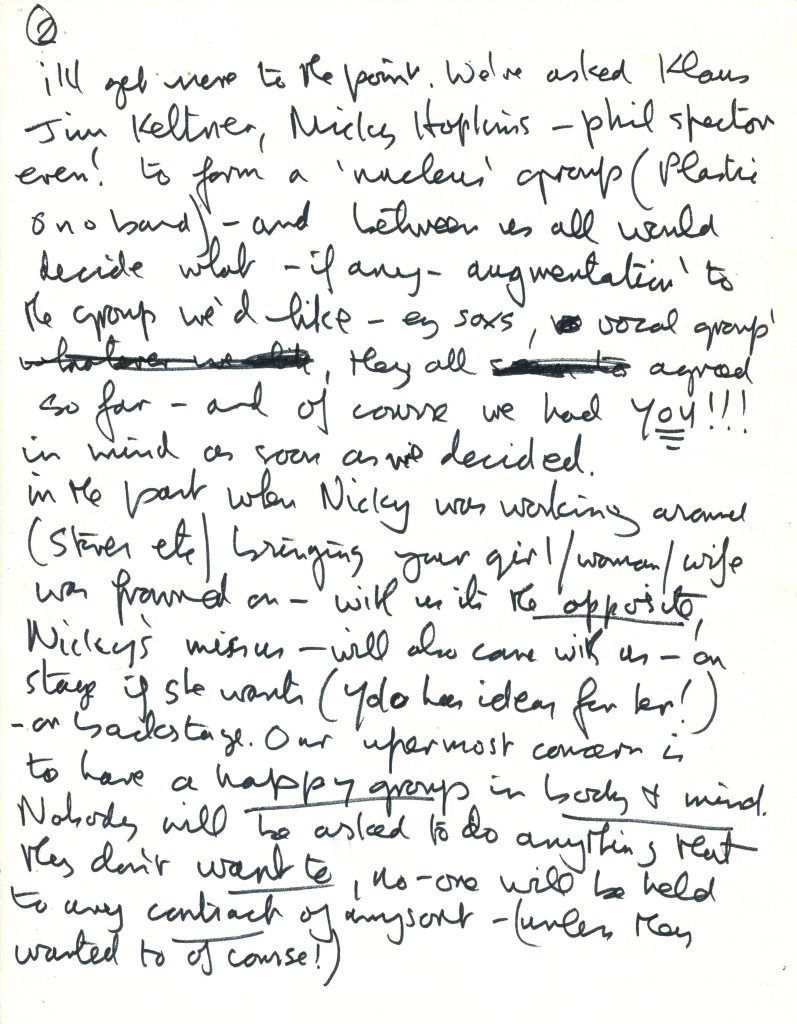 2
i'll get more to the point. We've asked Klaus
Jim Keltner, Nicky Hopkins – phil spector
even! to form a 'nucleus' group (Plastic
ono band) – and between us all would
decide what – if any – augmentation' to
the group we'd like – eg saxs, vocal group'
, they all agreed
so far – and of course we had YOU!!!
in mind as soon as we decided.
in the past when Nicky was working around
(Stones etc) bringing your girl/woman/wife
was frowned on – with us it's the opposite,
Nicky's missus – will also come with us – on
stage if she wants (Yoko has ideas for her!)
– or backstage. Our uppermost concern is
to have a happy group in body & mind.
Nobody will be asked to do anything that
they don't want to, no-one will be held
to any contract of anysort – (unless they
wanted to of course!)